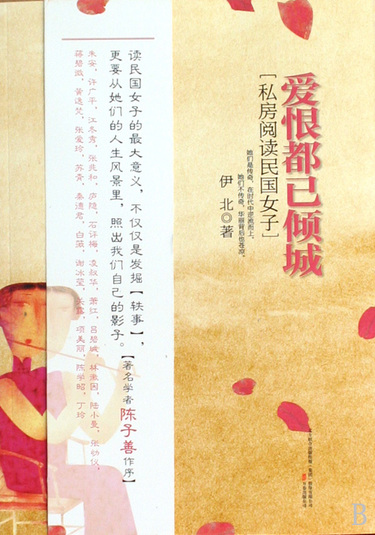 爱恨都已倾城
[私房阅读民国女子]
她们是传奇，在时代中逆流而上，
她们不传奇，华丽背后也苍凉。
伊北◎著
读民国女子的最大意义，不仅仅是发掘【轶事】，
更要从她们的人生风景里，照出我们自己的影子。
【著名学者陈子善作序】
朱安，许广平，江冬秀，张兆和，庐隐，石评梅，凌叔华，萧红，吕碧城，林徽因，陆小曼，张幼仪，
蒋碧微，黄逸梵，张爱玲，苏青，秦德君，白薇，谢冰莹，关露，项美丽，陈学昭，丁玲
B